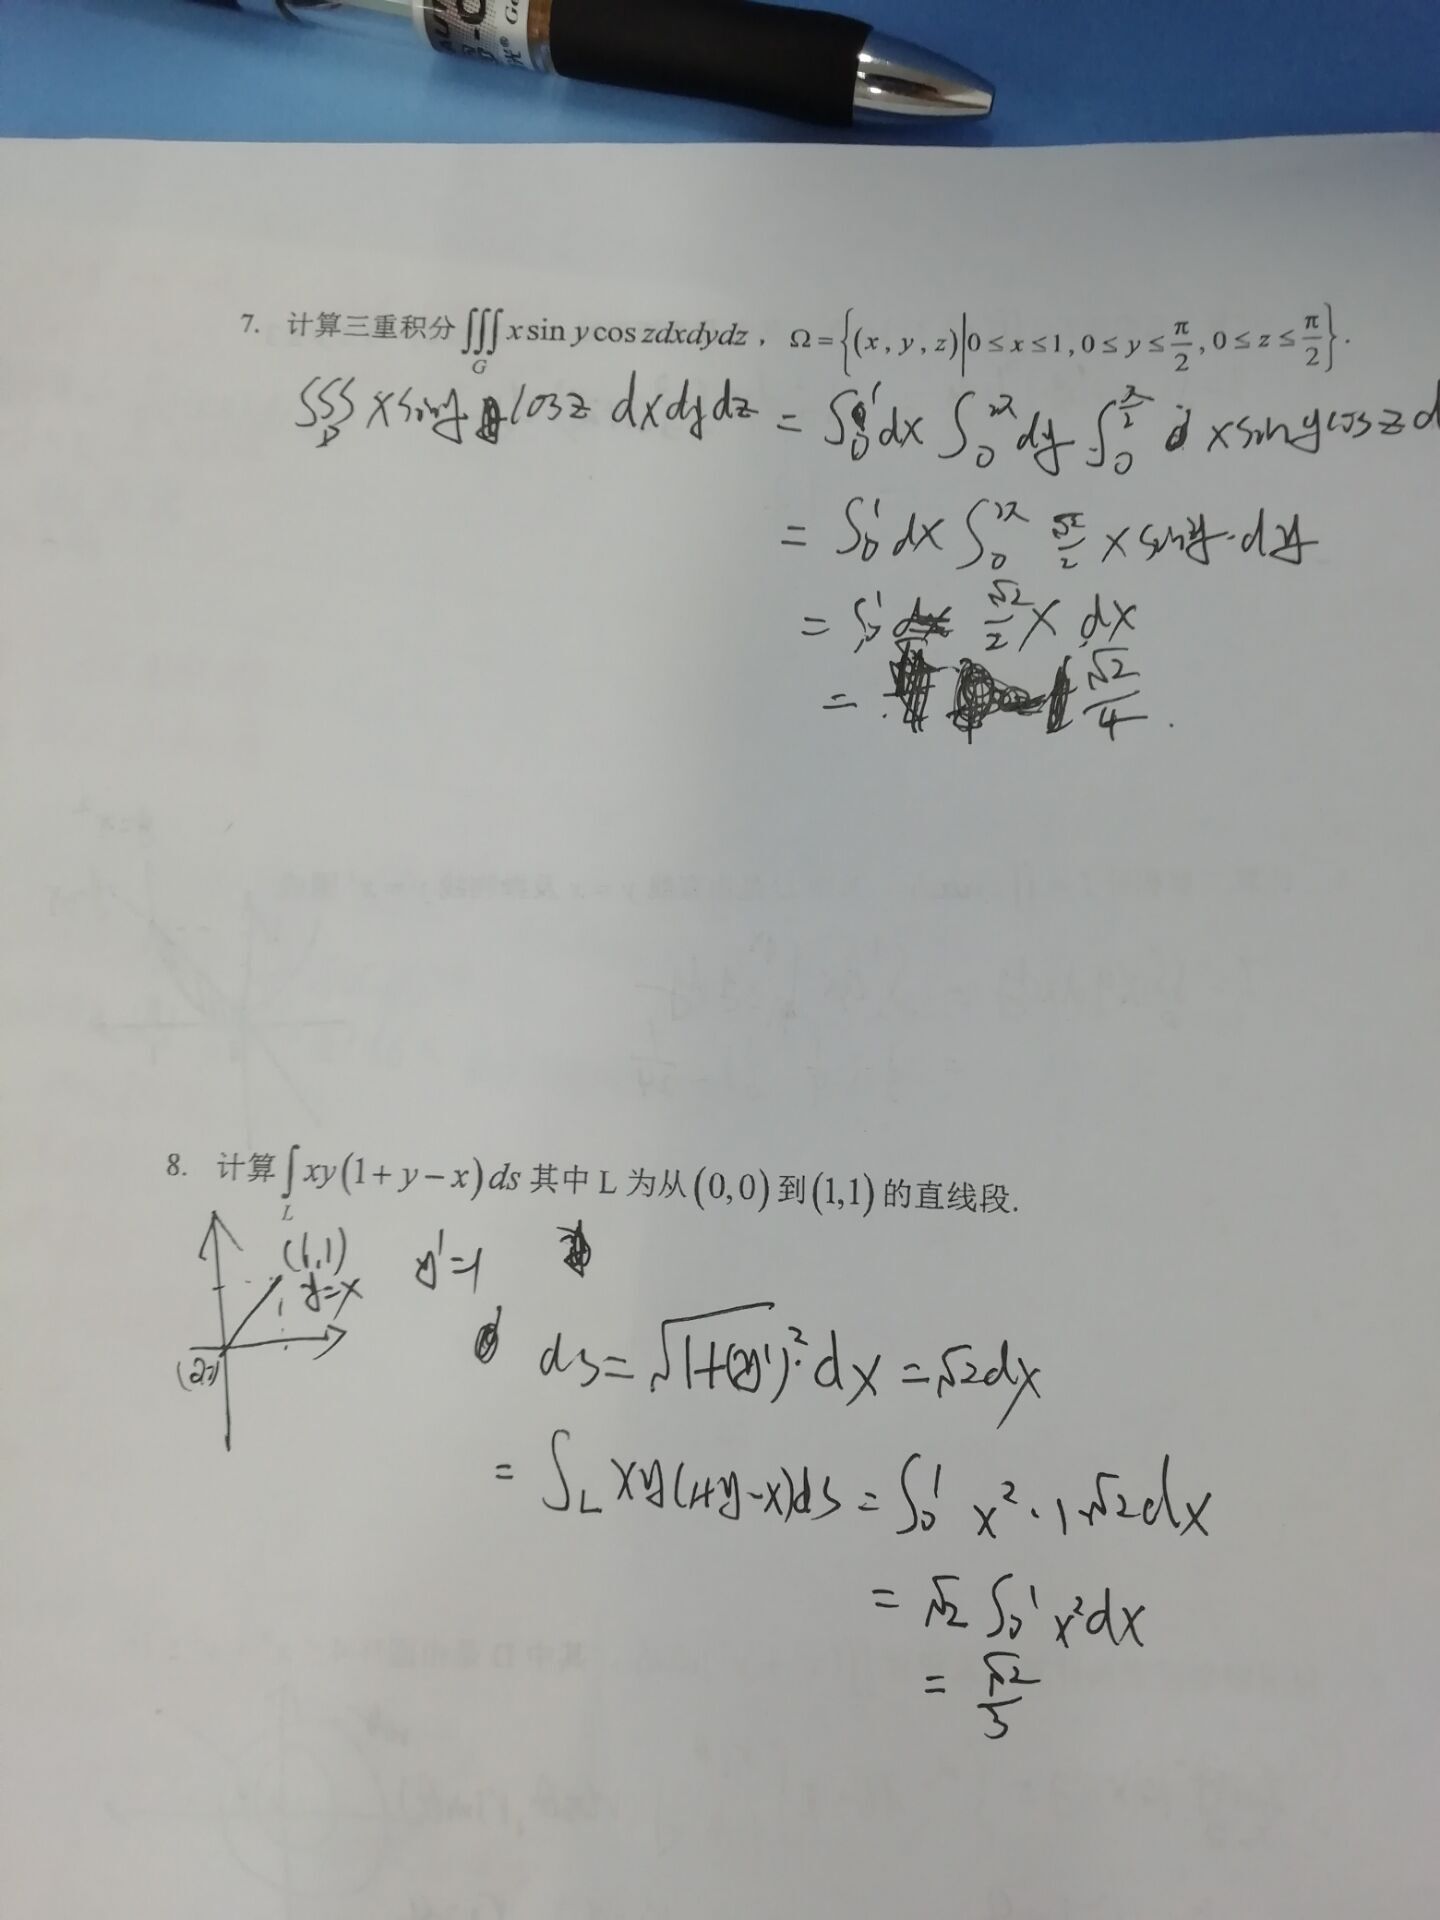 7. 计算三重积分 ∭_G x sin y cos z dxdydz，Ω={(x, y, z)|0≤x≤1,0≤y≤π/2,0≤z≤π/2}.
∭ x siny cosz dxdydz = ∫₀¹dx ∫₀ dy ∫₀ x siny cosz d
= ∫₀¹ dx ∫₀ √2/2 x siny·dy
= ∫₀¹ √2/2 x dx
= √2/4.
8. 计算∫_L xy(1+y−x)ds 其中 L 为从(0,0)到(1,1)的直线段.
(1,1) y'=1
y=x
ds=√(1+(y')²)·dx=√2dx
= ∫_L xy(1+y-x)ds = ∫₀¹ x²·1·√2dx
= √2 ∫₀¹ x²dx
= √2/3